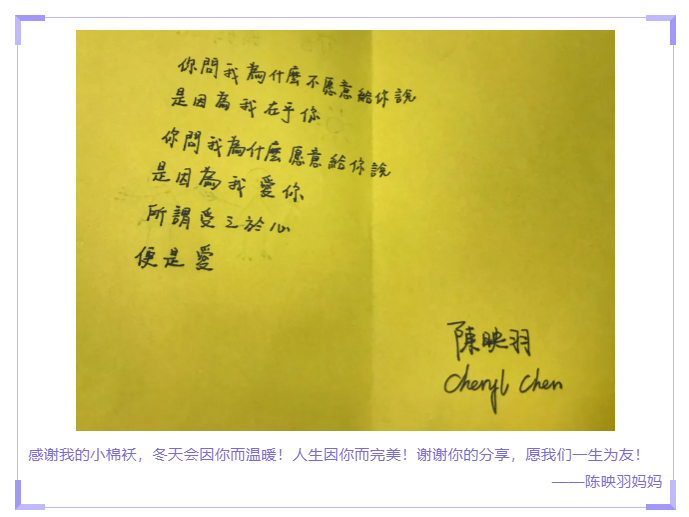 你問我為什麼不愿意給你說
是因為我在乎你
你問我為什麼愿意給你說
是因為我愛你
所謂受之於心
便是愛
陳映羽
Cheryl Chen
感谢我的小棉袄，冬天会因你而温暖！人生因你而完美！谢谢你的分享，愿我们一生为友！
——陈映羽妈妈